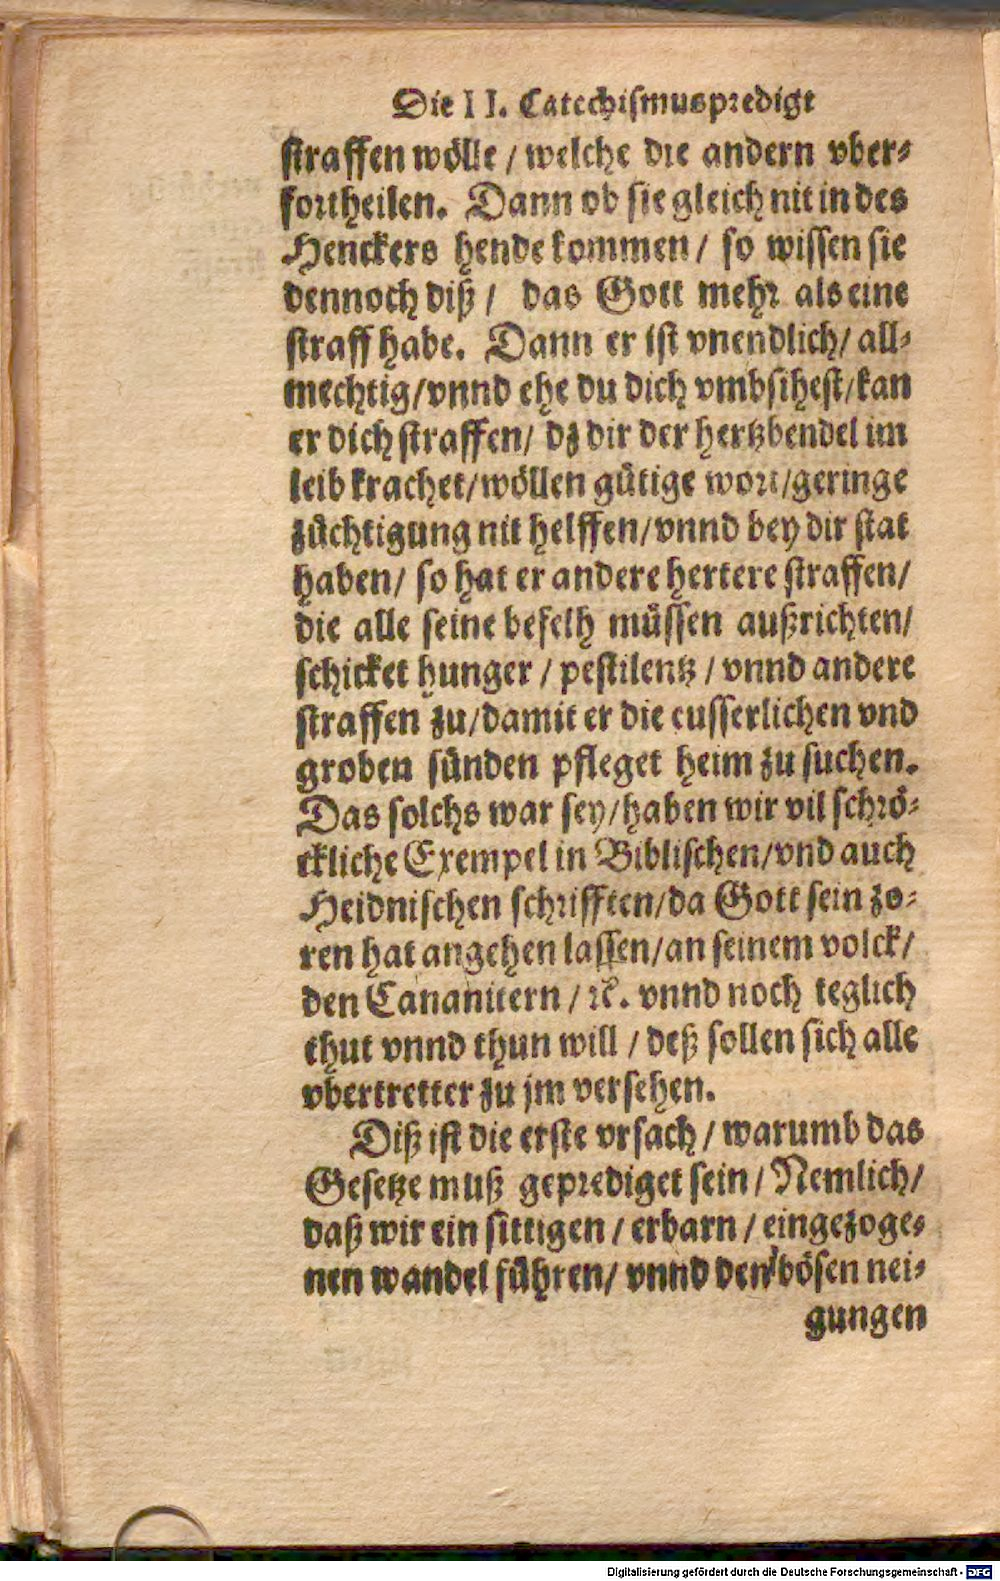 Die II. Catechismuspredigt
straffen wölle / welche die andern vber-
fortheilen. Dann ob sie gleich nit in des
Henckers hende kommen / so wissen sie
dennoch diß / das Gott mehr als eine
straff habe. Dann er ist vnendlich / all-
mechtig / vnnd ehe du dich vmbsihest / kan
er dich straffen / dz dir der hertzbendel im
leib krachet / wöllen gütige wort / geringe
züchtigung nit helffen / vnnd bey dir stat
haben / so hat er andere hertere straffen /
die alle seine befelh müssen außrichten /
schicket hunger / pestilentz / vnnd andere
straffen zu / damit er die eusserlichen vnd
groben sünden pfleget heim zu suchen.
Das solchs war sey / haben wir vil schrö-
ckliche Exempel in Biblischen / vnd auch
Heidnischen schrifften / da Gott sein zo-
ren hat angehen lassen / an seinem volck /
den Cananitern / ꝛc. vnnd noch teglich
thut vnnd thun will / deß sollen sich alle
vbertretter zu jm versehen.
Diß ist die erste vrsach / warumb das
Gesetze muß geprediget sein / Nemlich /
daß wir ein sittigen / erbarn / eingezoge-
nen wandel führen / vnnd den bösen nei-
gungen
Digitalisierung gefördert durch die Deutsche Forschungsgemeinschaft - DFG